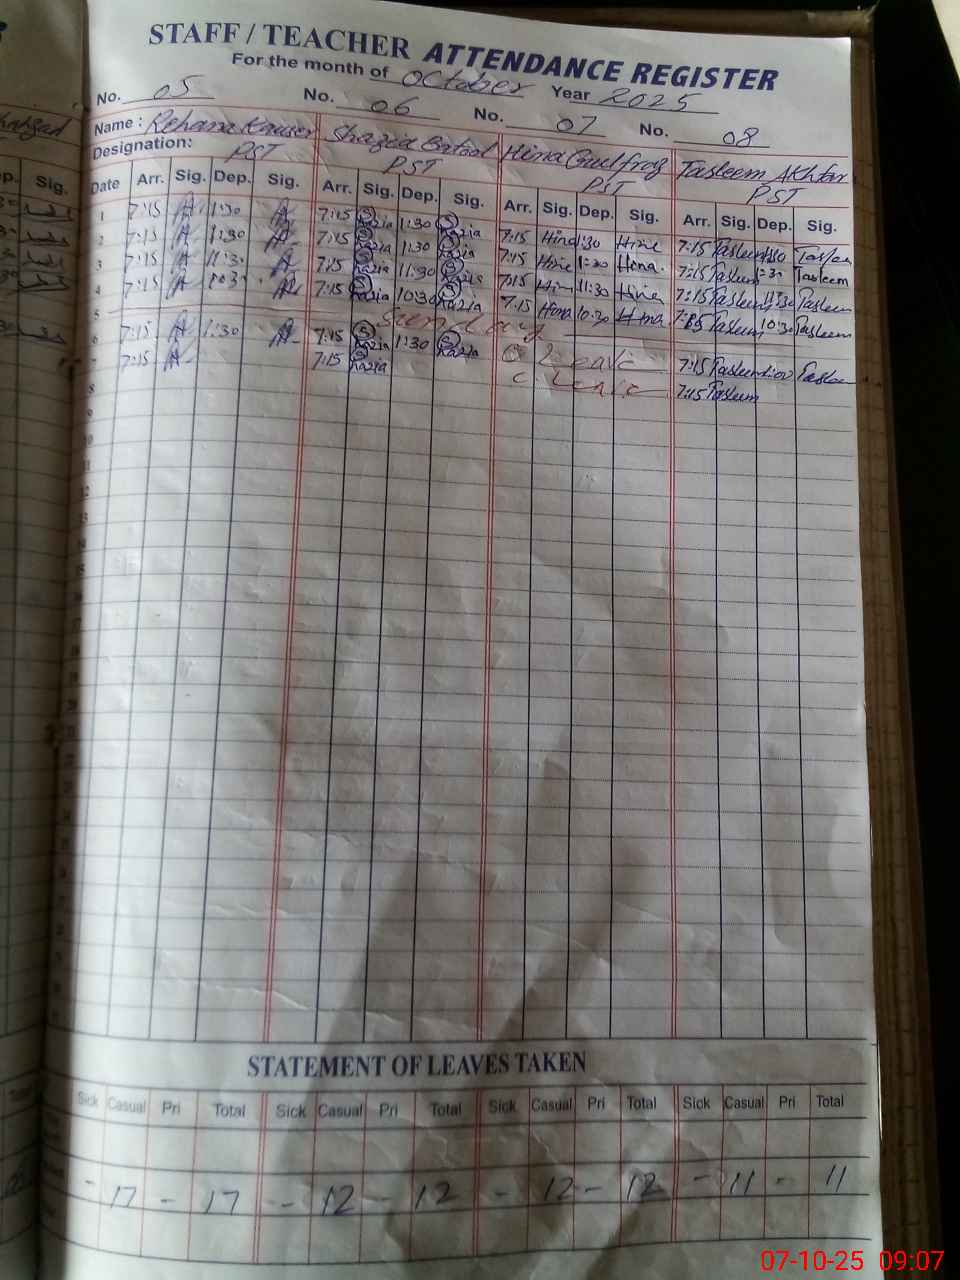 STAFF / TEACHER ATTENDANCE REGISTER
For the month of October Year 2025
No. 05 No. 06 No. 07 No. 08
Name : Rehana Kauser Shazia Batool Hina Gulfraz Tasleem Akhtar
Designation: PST PST PST PST
Date Arr. Sig. Dep. Sig. Arr. Sig. Dep. Sig. Arr. Sig. Dep. Sig. Arr. Sig. Dep. Sig.
1 7:15 A 1:30 A 7:15 Razia 1:30 Razia 7:15 Hina 1:30 Hina 7:15 Tasleem 1:30 Tasleem
2 7:15 A 1:30 A 7:15 Razia 1:30 Razia 7:15 Hina 1:30 Hina 7:15 Tasleem 1:30 Tasleem
3 7:15 A 11:30 A 7:15 Razia 11:30 Razia 7:15 Hina 11:30 Hina 7:15 Tasleem 11:30 Tasleem
4 7:15 A 10:30 A 7:15 Razia 10:30 Razia 7:15 Hina 10:30 Hina 7:15 Tasleem 10:30 Tasleem
5 Sunday
6 7:15 A 1:30 A 7:15 Razia 1:30 Razia C. Leave 7:15 Tasleem 1:00 Tasleem
7 7:15 A 7:15 Razia C. Leave 7:15 Tasleem
8
9
10
11
12
13
STATEMENT OF LEAVES TAKEN
Sick Casual Pri Total Sick Casual Pri Total Sick Casual Pri Total Sick Casual Pri Total
- 17 - 17 - 12 - 12 - 12 - 12 - 11 - 11
07-10-25 09:07